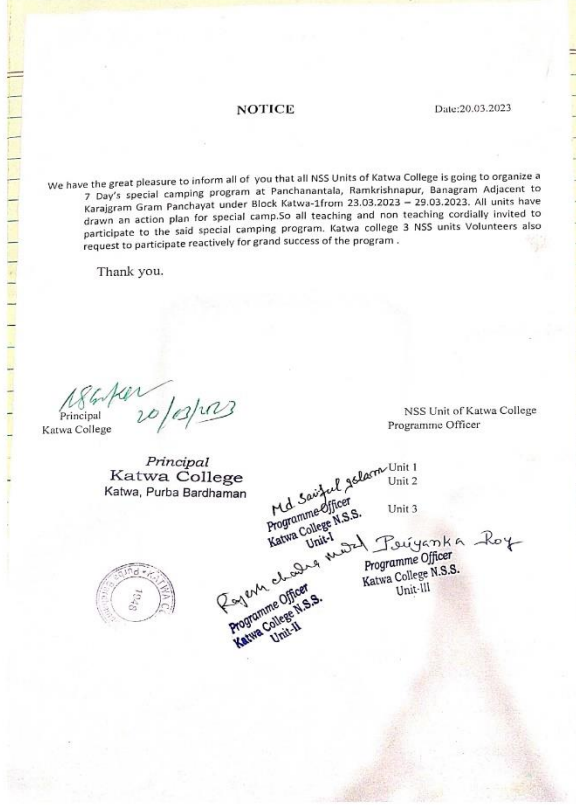 NOTICE
Date:20.03.2023
We have the great pleasure to inform all of you that all NSS Units of Katwa College is going to organize a
7 Day's special camping program at Panchanantala, Ramkrishnapur, Banagram Adjacent to
Karajgram Gram Panchayat under Block Katwa-1from 23.03.2023 – 29.03.2023. All units have
drawn an action plan for special camp.So all teaching and non teaching cordially invited to
participate to the said special camping program. Katwa college 3 NSS units Volunteers also
request to participate reactively for grand success of the program .
Thank you.
20/03/2023
Principal
Katwa College
NSS Unit of Katwa College
Programme Officer
Principal
Katwa College
Katwa, Purba Bardhaman
Unit 1
Unit 2
Unit 3
Md Saiful Islam
Programme Officer
Katwa College N.S.S.
Unit-I
Priyanka Roy
Programme Officer
Katwa College N.S.S.
Unit-III
Rajesh
Programme Officer
Katwa College N.S.S.
Unit-II
1948